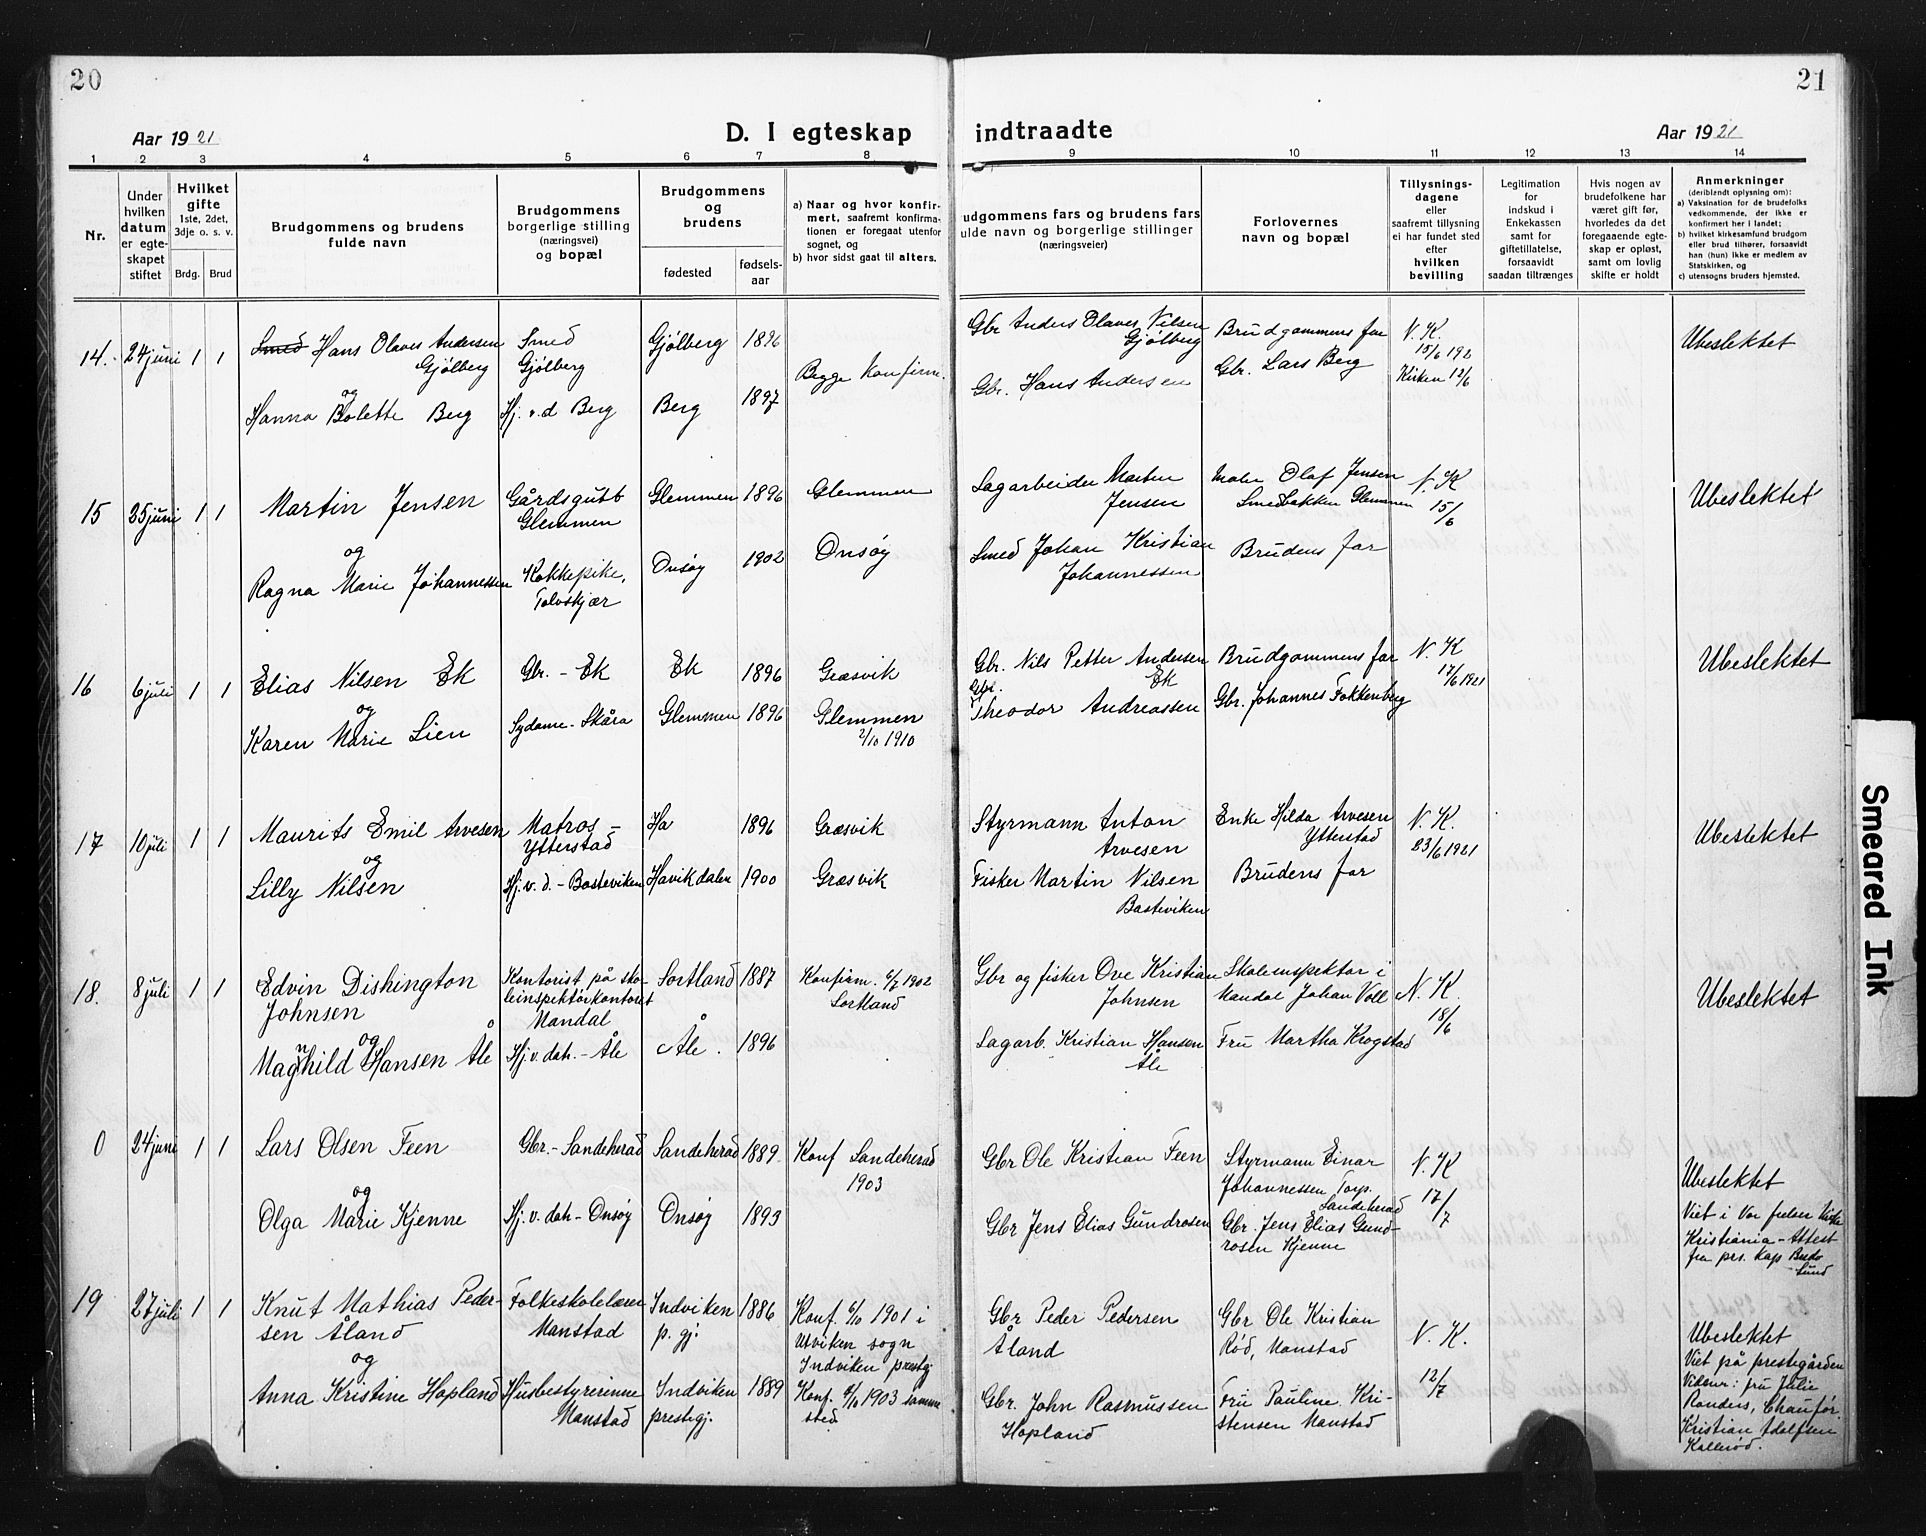 20
21
Aar 1921
D. I egteskap
indtraadte
Aar 1921
1 2 3 4 5 6 7 8 9 10 11 12 13 14
Nr.
Under hvilken datum er egteskapet stiftet
Hvilket gifte
1ste, 2det, 3dje o. s. v.
Brdg. Brud
Brudgommens og brudens fulde navn
Brudgommens borgerlige stilling (næringsvei) og bopæl
Brudgommens og brudens
fødested
fødselsaar
a) Naar og hvor konfirmert, saafremt konfirmationen er foregaat utenfor sognet, og
b) hvor sidst gaat til alters.
udgommens fars og brudens fars
ulde navn og borgerlige stillinger
(næringsveier)
Forlovernes navn og bopæl
Tillysningsdagene eller saafremt tillysning ei har fundet sted efter hvilken bevilling
Legitimation for indskud i Enkekassen samt for giftetillatelse, forsaavidt saadan tiltrænges
Hvis nogen av brudefolkene har været gift før, hvorledes da det foregaaende egteskap er opløst, samt om lovlig skifte er holdt
Anmerkninger
(deriblandt oplysning om):
a) Vaksination for de brudefolks vedkommende, der ikke er konfirmert her i landet;
b) hvilket kirkesamfund brudgom eller brud tilhører, forsaavidt han (hun) ikke er medlem av Statskirken, og
c) utensogns bruders hjemsted.
14. 24 juni 1 1
Smed Hans Olaves Andersen
Gjølberg
og
Hanna Bolette Berg
Smed
Gjølberg
Hj. v. d Berg
Gjølberg 1896
Berg 1897
Begge Konfirm.
Gbr Anders Olaves Nilsen
Gjølberg
Gbr. Hans Andersen
Brudgommens far
Gbr. Lars Berg
N. K.
15/6 192
Kirken 12/6
Ubeslektet
15 25 juni 1 1
Martin Jensen
og
Ragna Marie Johannessen
Gårdsgutt
Glemmen
Kokkepike,
Glemmen 1896
Onsøy 1902
Glemmen
Onsøy
Sagarbeider Marten
Jensen
Smed Johan Kristian
Johannessen
Maler Olaf Jensen
Smedbakken Glemmen
Brudens far
N. K
15/6
Ubeslektet
16 6 juli 1 1
Elias Nilsen Ek
og
Karen Marie Lien
Gbr. - Ek
Sydame - Skåra
Ek 1896
Glemmen 1896
Græsvik
Glemmen
2/10 1910
Gbr. Nils Petter Andersen
Ek
Gbr.
Theodor Andreassen
Brudgommens far
Gbr. Johannes Fokkenberg
N. K
17/6 1921
Ubeslektet
17 10 juli 1 1
Maurits Emil Arvesen
og
Lilly Nilsen
Matros -
Ytterstad
Hj. v. d. - Basteviken
Ha 1896
Havikdalen 1900
Græsvik
Græsvik
Styrmann Anton
Arvesen
Fisker Martin Nilsen
Basteviken
Enke Hilda Arvesen
Ytterstad
Brudens far
N. K.
23/6 1921
Ubeslektet
18. 8 juli 1 1
Edvin Dishington
Johnsen
og
Magnhild Hansen Åle
Kontorist på sko-
leinspektørkontoret
Mandal
Hj. v. dah. - Åle
Sortland 1887
Åle. 1896
Konfirm. 6/7 1902
Sortland
Gbr og fisker Ove Kristian
Johnsen
Sagarb. Kristian Hansen
Åle
Skoleinspektør i
Mandal Johan Voll
Fru Martha Krogstad
N. K.
18/6
Ubeslektet
0 24 juni 1 1
Lars Olsen Feen
og
Olga Marie Kjenne
Gbr. - Sandeherad
Hj. v. dah - Onsøy
Sandeherad 1889
Onsøy 1893
Konf Sandeherad
1903
Gbr Ole Kristian Feen
Gbr Jens Elias Gundrosen
Styrmann Einar
Johannessen Torp.
Sandeherad
Gbr. Jens Elias Gund-
rosen Kjenne
N. K
17/7
Ubeslektet
Viet i Vor frelser Kirke
Kristiania - Attest
fra prs. Kap
Sund
19 27 juli 1 1
Knut Mathias Peder-
sen Åland
og
Anna Kristine Hopland
Folkeskolelærer
Manstad
Husbestyrerinne
Manstad
Indviken 1886
p. gj.
Indviken 1889
prestegj.
Konf. 6/10 1901 i
Utviken sogn
Indviken prestgj
Konf. 4/10 1903 samme
sted
Gbr Peder Pedersen
Åland
Gbr. John Rasmussen
Hopland
Gbr Ole Kristian
Rød, Manstad
Fru Pauline Kri-
stensen Manstad
N. K.
12/7
Ubeslektet
Viet på prestegården
Vidner: fru Julie
Randers, Chaufør
Kristian Adolfsen
Kallerød.
Smeared Ink